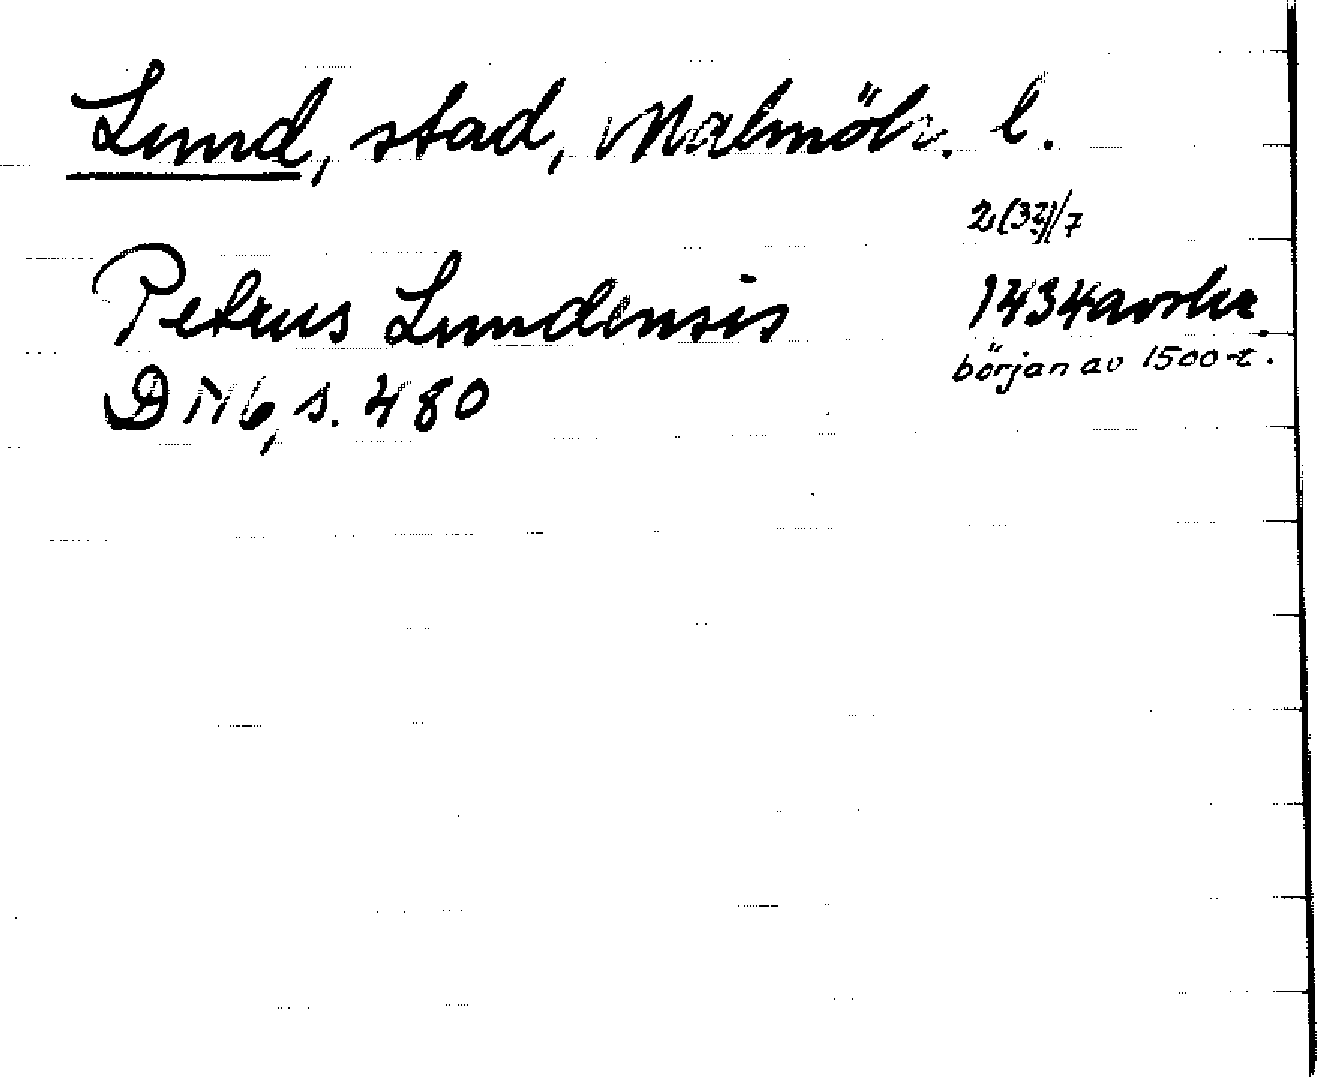 Lund, stad, Malmöh. l.
2(3?)/7
Petrus Lundensis 1434 avskr.
början av 1500-t.
DMb, s. 480